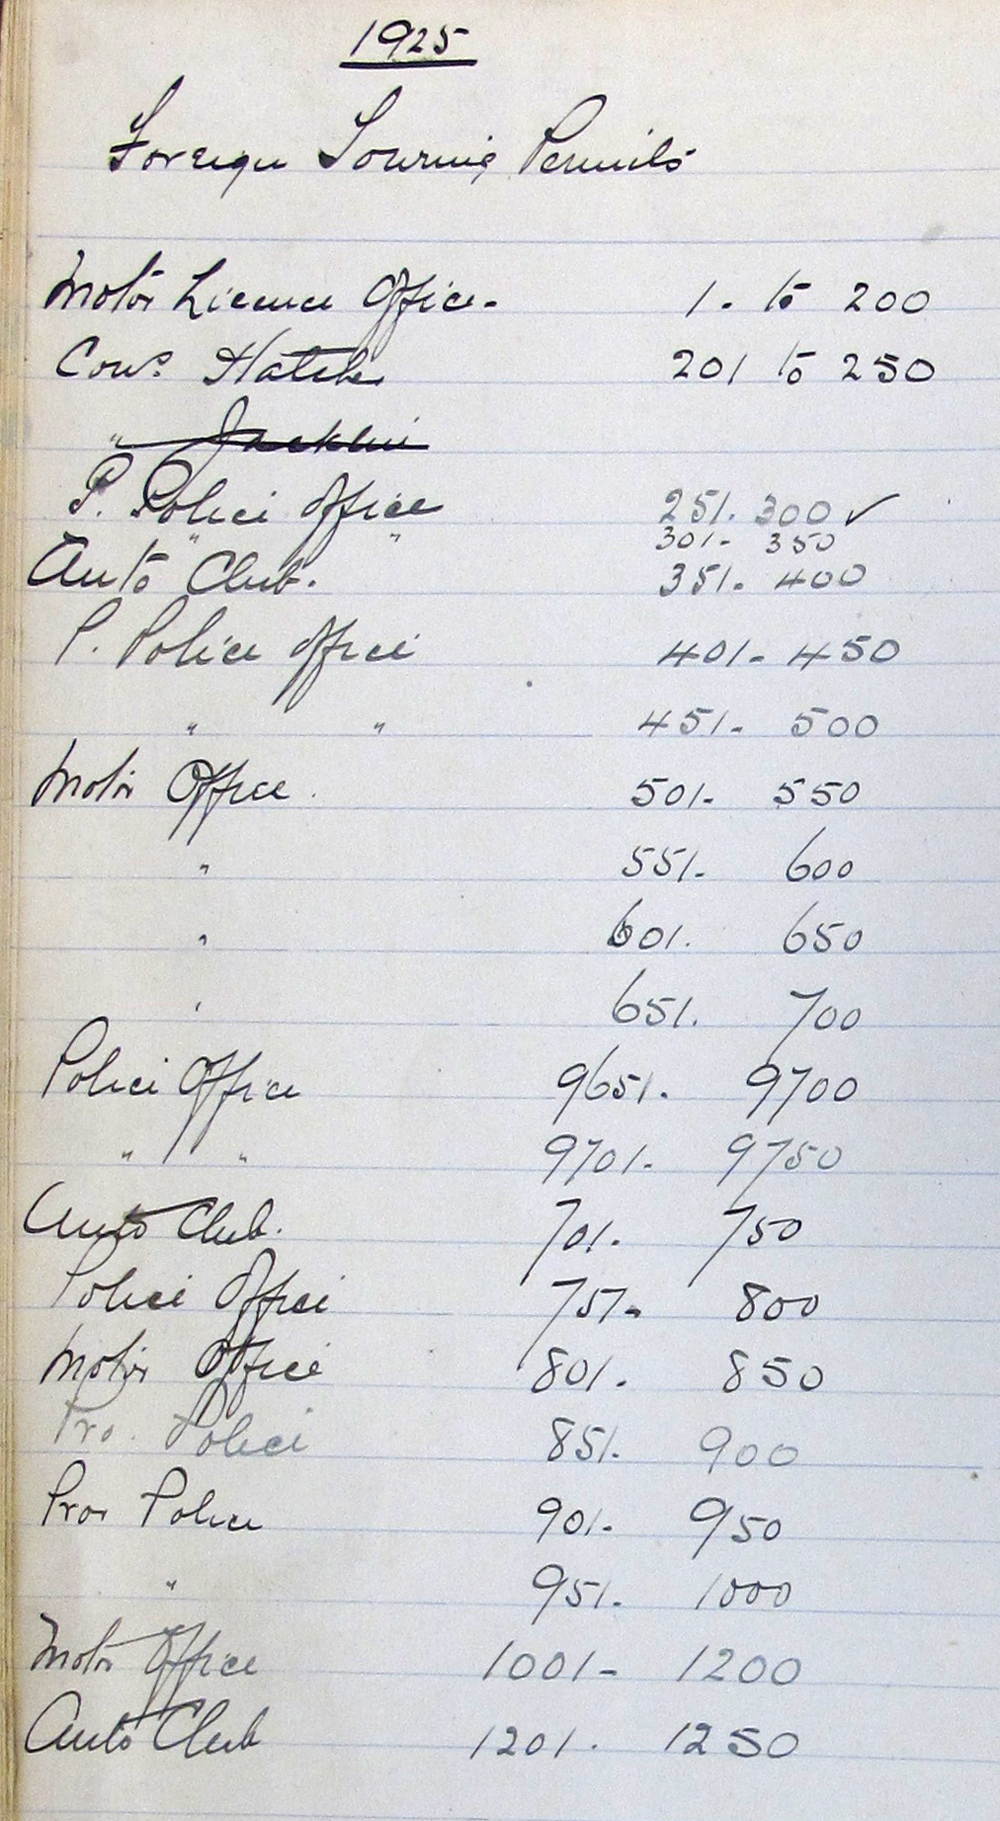 1925
Foreign Touring Permits
Motor Licence Office - 1. to 200
Cons. Hatch 201 to 250
" Jacklin
P. Police Office 251. 300 ✓
" " 301- 350
Auto Club. 351. 400
P. Police Office 401- 450
" " 451- 500
Motor Office. 501- 550
" 551- 600
" 601. 650
" 651. 700
Police Office 9651. 9700
" " 9701- 9750
Auto Club. 701. 750
Police Office 751- 800
Motor Office 801. 850
Pro. Police 851. 900
Prov Police 901- 950
" 951. 1000
Motor Office 1001- 1200
Auto Club 1201. 1250